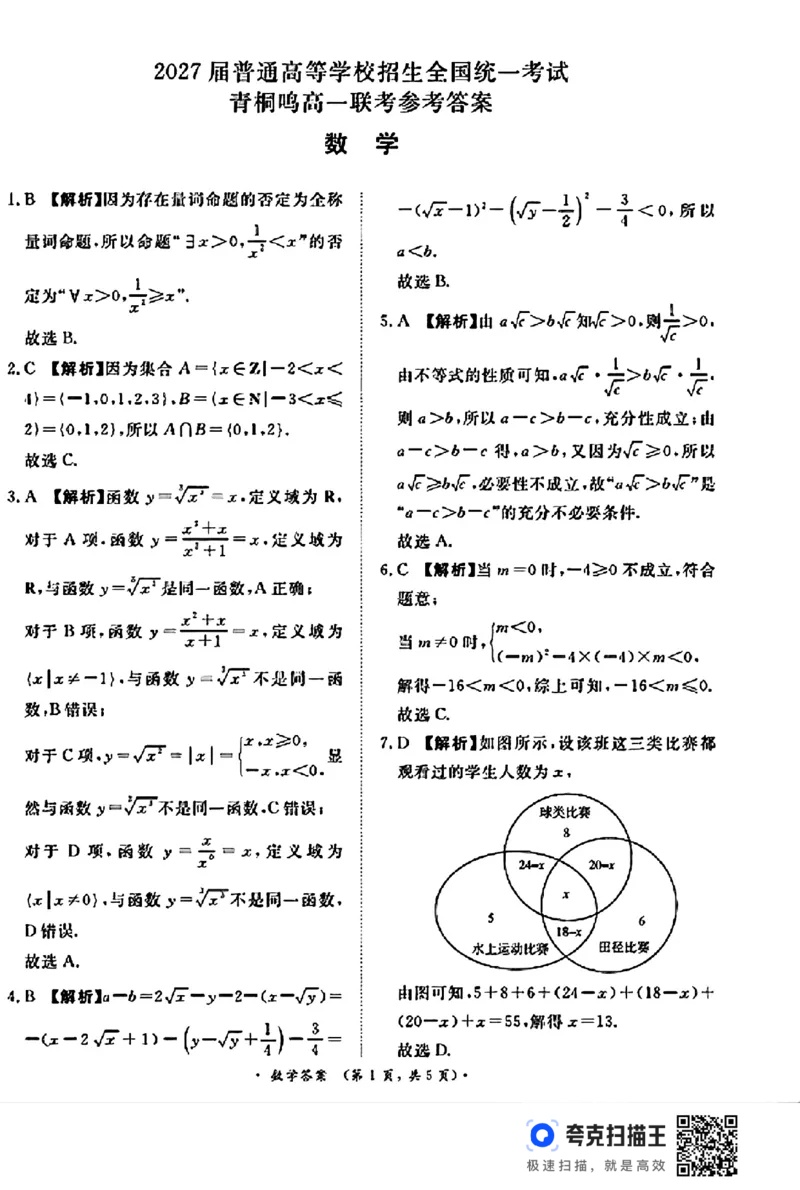 2027届普通高等学校招生全国统一考试
青桐鸣高一联考参考答案
数 学
1.B 【解析】因为存在量词命题的否定为全称
量词命题,所以命题“∃x>0,1/x²<x”的否
定为“∀x>0,1/x²≥x”.
故选 B.
2.C 【解析】因为集合 A={x∈Z|-2<x<
4}={-1,0,1,2,3},B={x∈N|-3<x≤
2}={0,1,2},所以 A∩B={0,1,2}.
故选 C.
3.A 【解析】函数 y=∛x³=x,定义域为 R,
对于 A 项,函数 y=(x³+x)/(x²+1)=x,定义域为
R,与函数 y=∛x³是同一函数,A 正确;
对于 B 项,函数 y=(x²+x)/(x+1)=x,定义域为
{x|x≠-1},与函数 y=∛x³不是同一函
数,B 错误;
对于 C 项,y=√x²=|x|={x,x≥0, -x,x<0. 显
然与函数 y=∛x³不是同一函数,C 错误;
对于 D 项,函数 y=x/x⁰=x,定义域为
{x|x≠0},与函数 y=∛x³不是同一函数,
D 错误.
故选 A.
4.B 【解析】a-b=2√x-y-2-(x-√y)=
-(x-2√x+1)-(y-√y+1/4)-3/4=
-(√x-1)²-(√y-1/2)²-3/4<0,所以
a<b.
故选 B.
5.A 【解析】由 a√c>b√c知√c>0,则1/√c>0,
由不等式的性质可知,a√c·1/√c>b√c·1/√c,
则 a>b,所以 a-c>b-c,充分性成立;由
a-c>b-c 得,a>b,又因为√c≥0,所以
a√c≥b√c,必要性不成立,故“a√c>b√c”是
“a-c>b-c”的充分不必要条件.
故选 A.
6.C 【解析】当 m=0时,-4≥0 不成立,符合
题意;
当 m≠0 时,{m<0, (-m)²-4×(-4)×m<0,
解得-16<m<0,综上可知,-16<m≤0.
故选 C.
7.D 【解析】如图所示,设该班这三类比赛都
观看过的学生人数为 x,
球类比赛
8
24-x 20-x
x
5 6
18-x
水上运动比赛 田径比赛
由图可知,5+8+6+(24-x)+(18-x)+
(20-x)+x=55,解得 x=13.
故选 D.
·数学答案 (第1页,共5页)·
夸克扫描王
极速扫描,就是高效